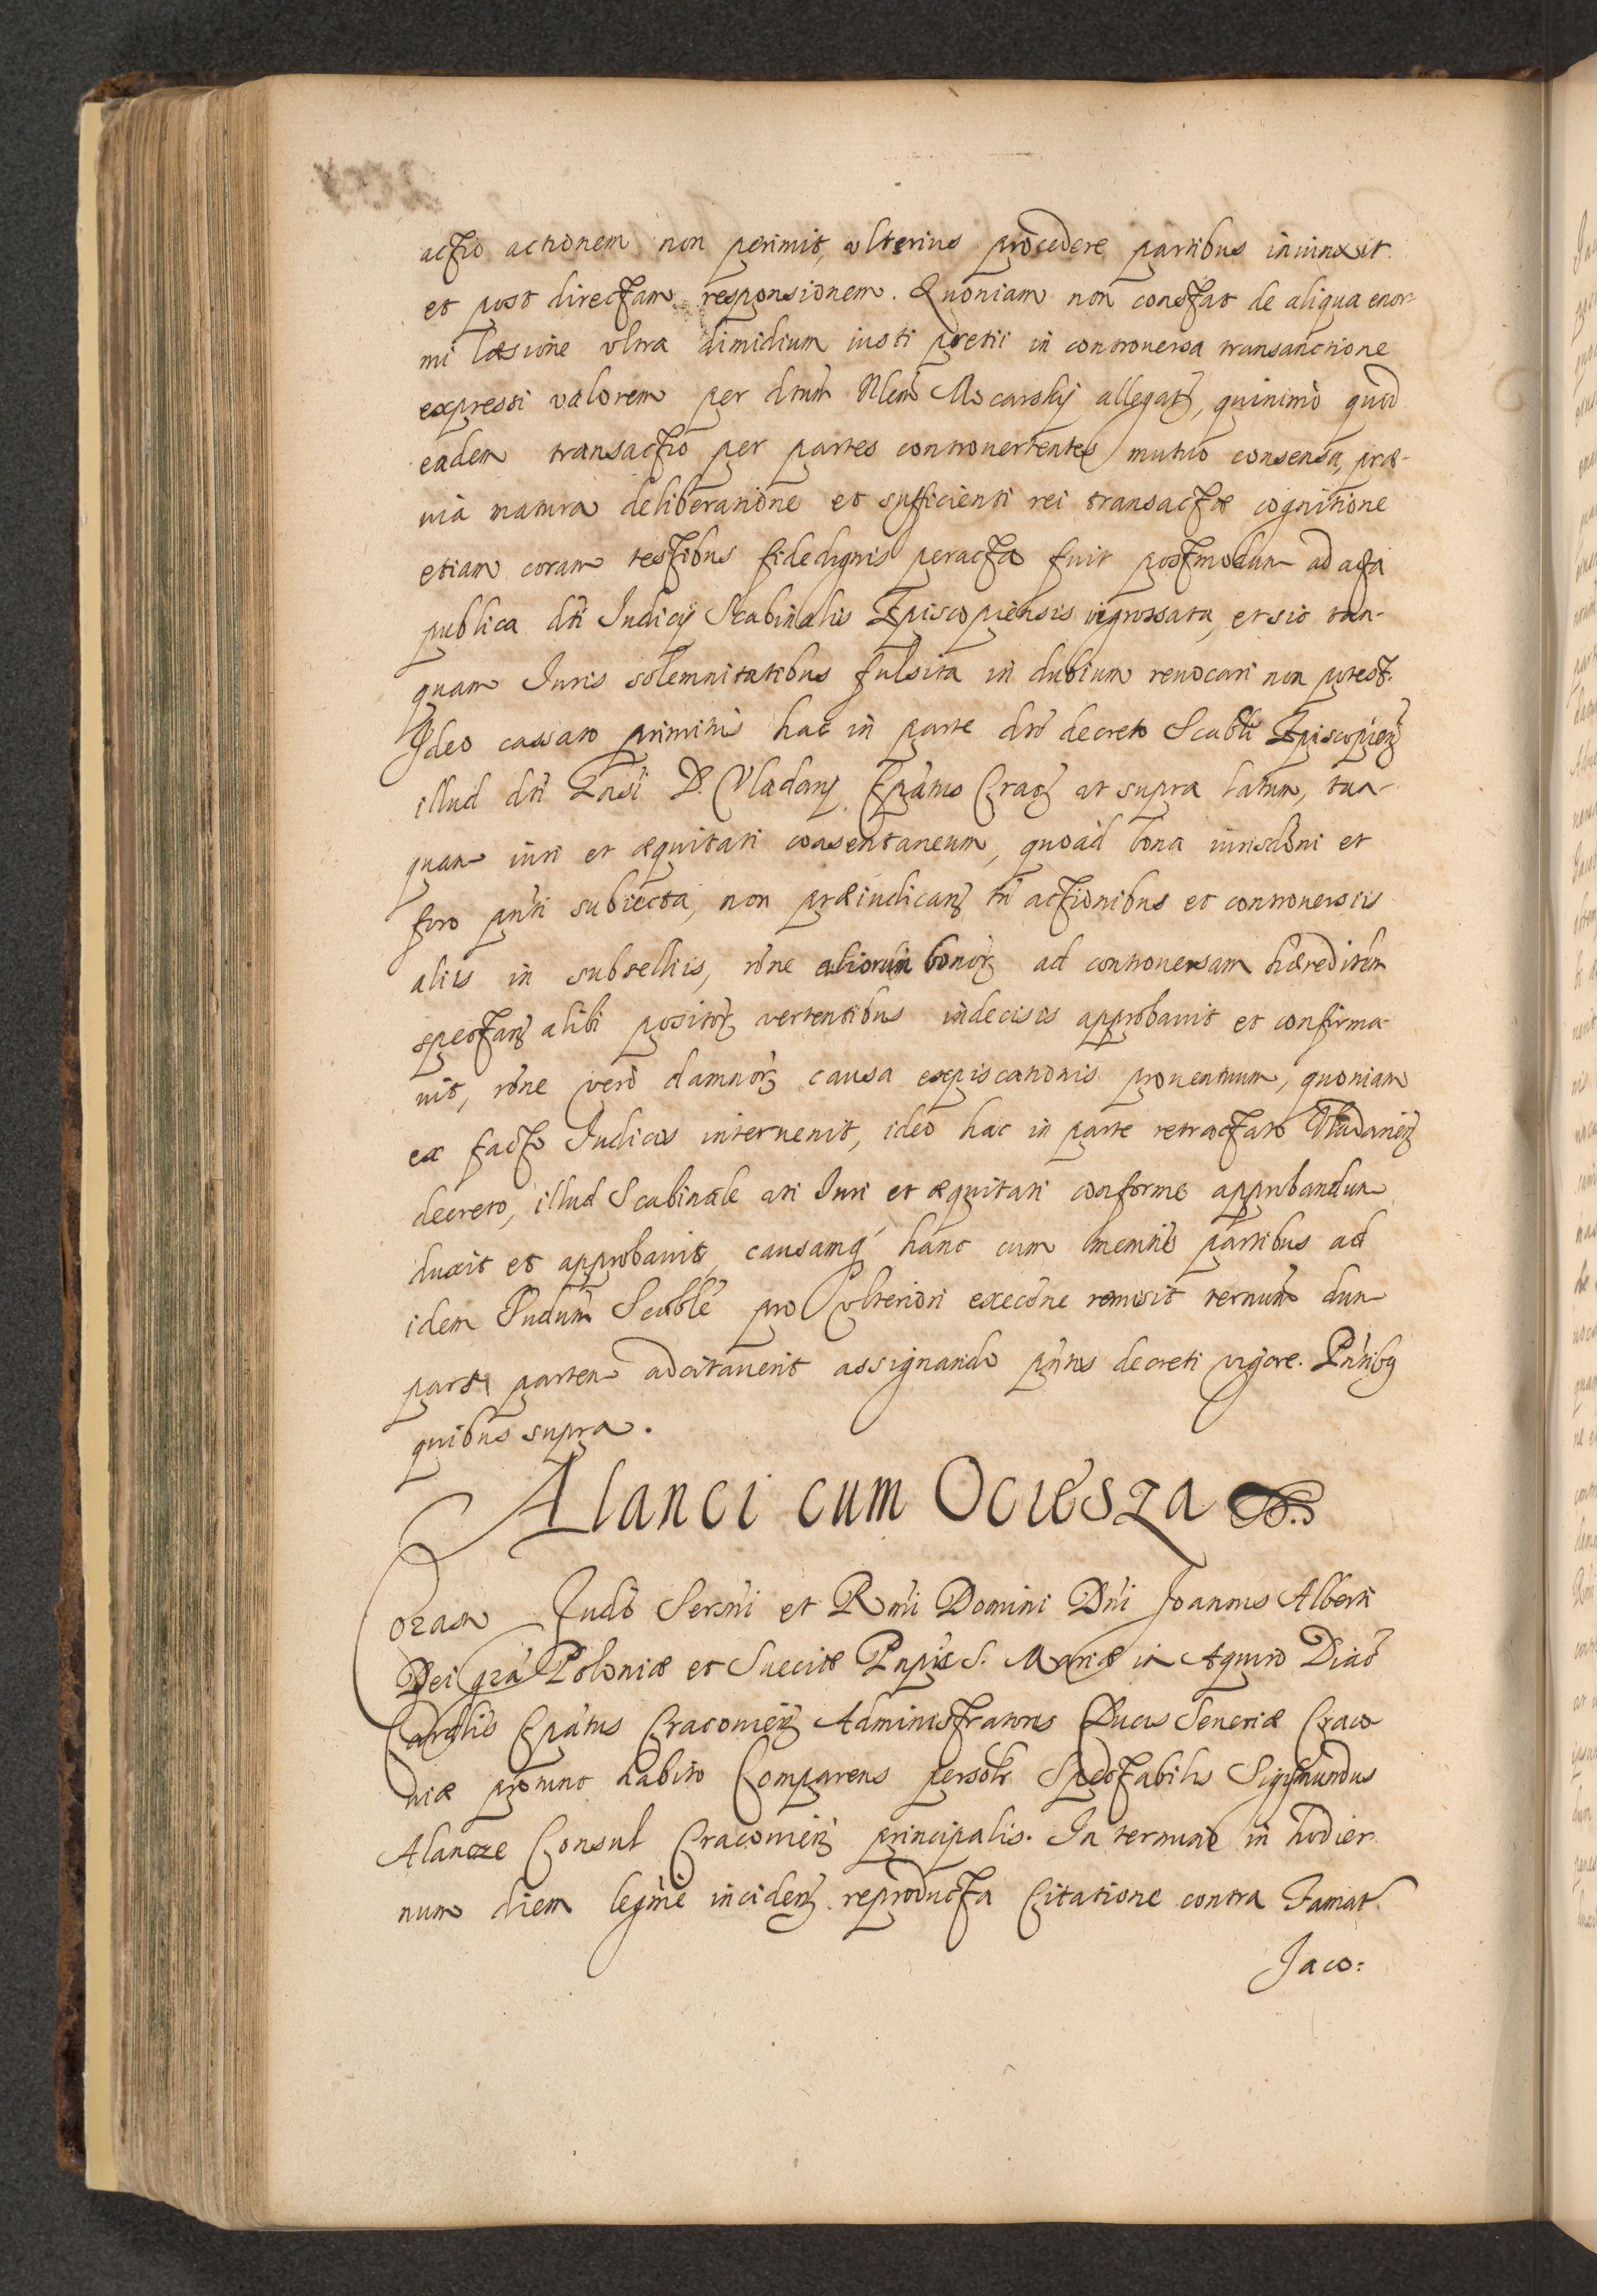 actio actionem non perimit, ulterius procedere partibus iniunxit
et post directam responsionem. Quoniam non constat de aliqua enor-
mi læsione ultra dimidium iusti pretii in controversa transanctione
expressi valorem per dtum Nlem Mscarskÿ allegat, quinimò quod
eadem transactio per partes controuertentes mutuo consensu, præ-
uià matura deliberatione et sufficienti rei transactæ cognitione
etiam coram testibus fidedignis peracta fuit postmodum ad acta
publica dti Judicÿ Scabinalis Episcopiensis ingrossata, et sic tan-
quam Juris solemnitatibus fulsita in dubium reuocari non potest.
Ideo cassato primitùs hac in parte dto decreto Scabli Episcopien
illud dti D. Uladarÿ Epatus Crac ut supra latum, tan-
quam iuri et æquitati consentaneum, quoad bona iurisdoni et
foro pnti subiecta, non præiudican tn actionibus et controuersiis
aliis in subselliis, rone aliorum bonor ad controuersam hæreditem
spectan alibi positor vertentibus indecisis approbauit et confirma-
uit, rone verò damnor causa expiscationis prouentuum, quoniam
ex facto Judicis interuenit, ideo hac in parte retractato Vladarien
decreto, illud Scabinale uti Juri et æquitati conforme approbandum
duxit et approbauit, causamq hanc cum partibus ad
idem Judum Scable pro ulteriori execone remisit terminum dum
pars partem adcitauerit assignando pntis decreti vigore. Pntibq
quibus supra.
Alanci cum Ociesza
Coram Judo Sermi et Rmi Domini Dni Joannis Alberti
Dei gra Poloniæ et Sueciæ Pnpis S. Mariæ in Aquiro Diac
Cardlis Epatus Cracouien Administratoris Ducis Seueriæ Craco
uiæ protunc habito Comparens persolr Spectabilis Sigismundus
Alancze Consul Cracouien principalis. In termino in hodier
num diem legme inciden reproducta Citatione contra Famat.
Jaco: